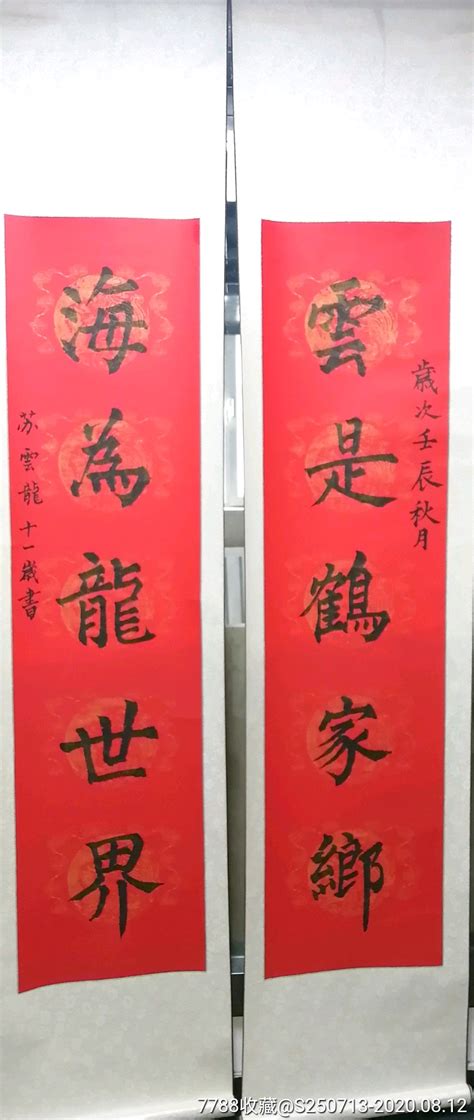 歲次壬辰秋月
雲是鶴家鄉
海為龍世界
苏雲龍十一歲書
7788收藏@S250713-2020.08.12